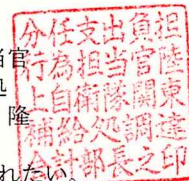 当官
処
隆
れたい。
分任支出負担
行為担当官陸
上自衛隊関東
補給処調達
会計部長之印